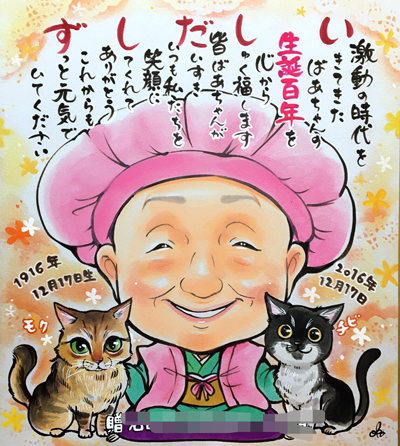 いしだしず
激動の時代を
いきてきた
ばあちゃんの
生誕百年を
心から
しゅく福します
皆ばあちゃんが
だいすき
いつも私たちを
笑顔に
してくれて
ありがとう
これからも
ずっと元気で
いてください
1916年
12月17日生
2016年
12月17日
モク
チビ
贈